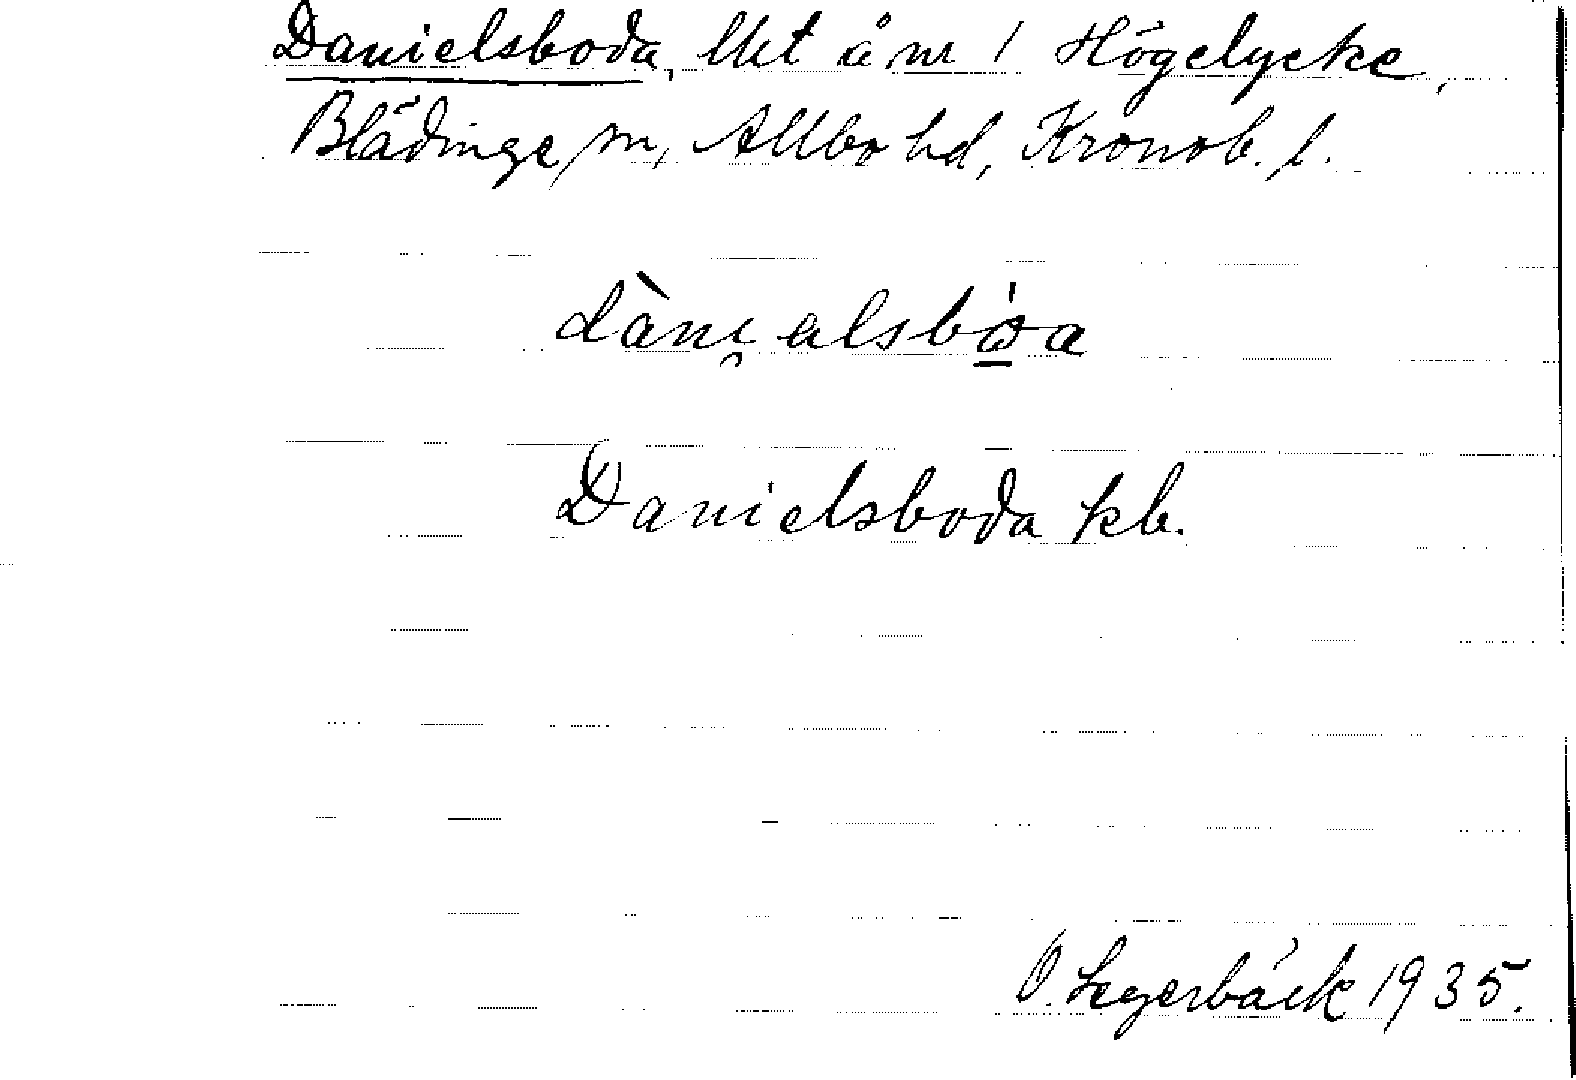 Danielsboda, lht å nr 1 Högelycke,
Blädinge sn, Allbo hd, Kronob. l.
Danielsboda kb.
O. Segerbäck 1935.